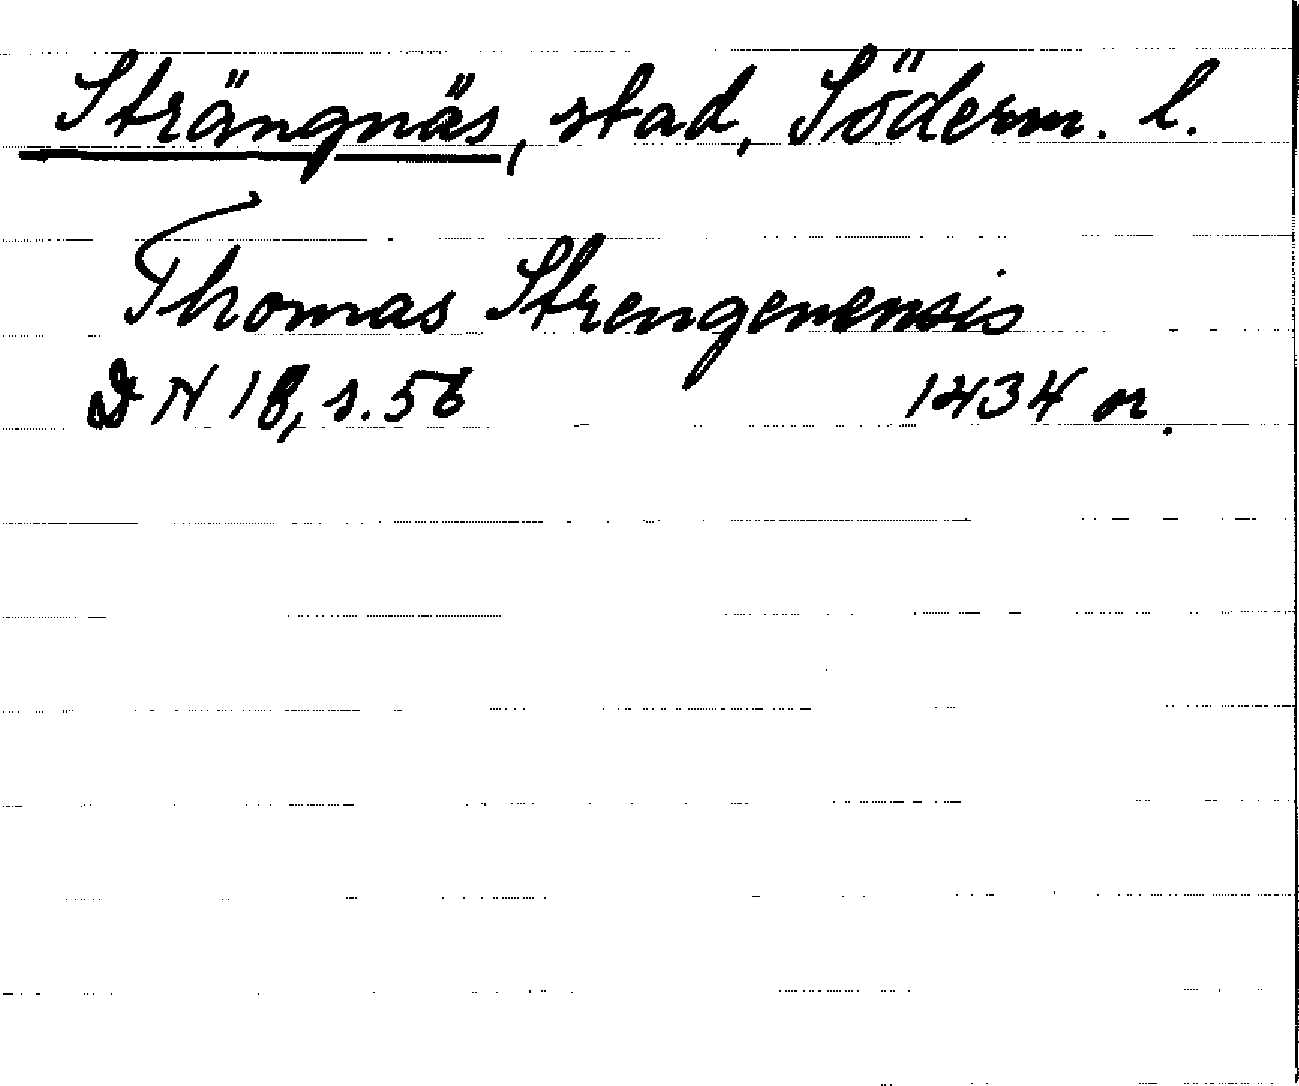 Strängnäs, stad, Söderm. l.
Thomas Strengenensis
DN 18, s. 56 1434 or.